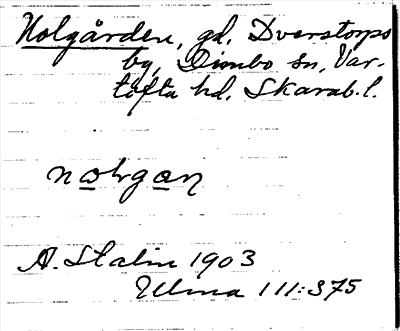 Nolgården, gd, Dverstorps
by, Dimbo sn, Var-
tofta hd, Skarab.l.
nolrgan
A. Stalin 1903
Ulma 111:375